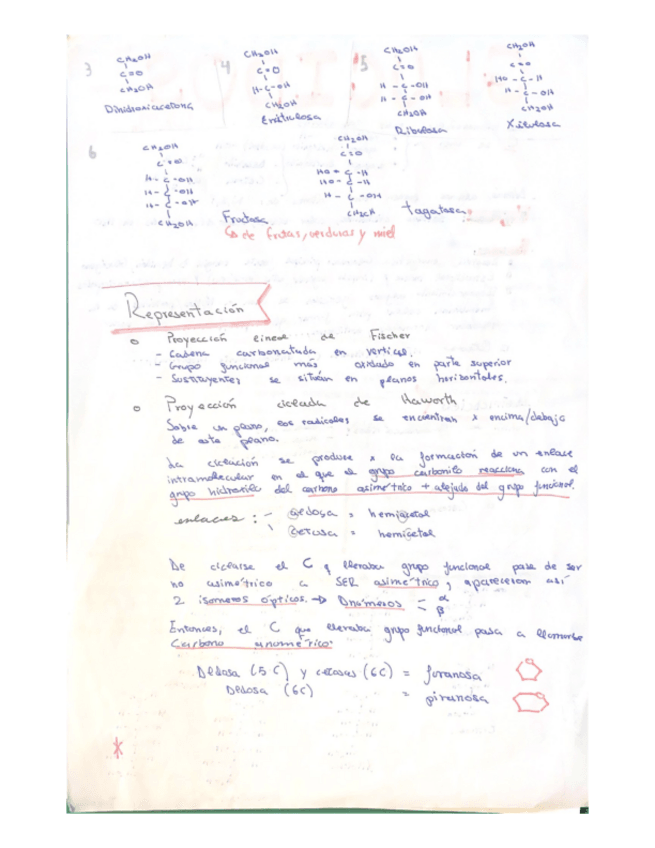 3
CH2OH
C=O
CH2OH
Dihidroxiacetona
4
CH2OH
C=O
H-C-OH
CH2OH
Eritrulosa
5
CH2OH
C=O
H-C-OH
H-C-OH
CH2OH
Ribulosa
CH2OH
C=O
HO-C-H
H-C-OH
CH2OH
Xilulosa
6
CH2OH
C=O
H-C-OH
H-C-OH
H-C-OH
CH2OH
Fructosa
↳ de frutas, verduras y miel
CH2OH
C=O
HO-C-H
HO-C-H
H-C-OH
CH2OH
tagatosa
Representación
o Proyección lineal de Fischer
- Cadena carbonatada en vertical.
- Grupo funcional más oxidado en parte superior
- Sustituyentes se sitúan en planos horizontales.
o Proyección ciclada de Haworth
Sobre un plano, los radicales se encuentran x encima/debajo
de este plano.
La ciclación se produce x la formación de un enlace
intramolecular en el que el grupo carbonilo reacciona con el
grupo hidroxilo del carbono asimétrico + alejado del grupo funcional.
enlaces: - aldosa = hemiacetal
\ cetosa = hemicetal
De ciclarse el C q llevaba grupo funcional pasa de ser
no asimétrico a SER asimétrico, aparecerán así
2 isómeros ópticos. → Anómeros = α
β
Entonces, el C que llevaba grupo funcional pasa a llamarse
Carbono anomérico.
Aldosa (5 C) y cetosas (6C) = furanosa
Aldosa (6C) = piranosa